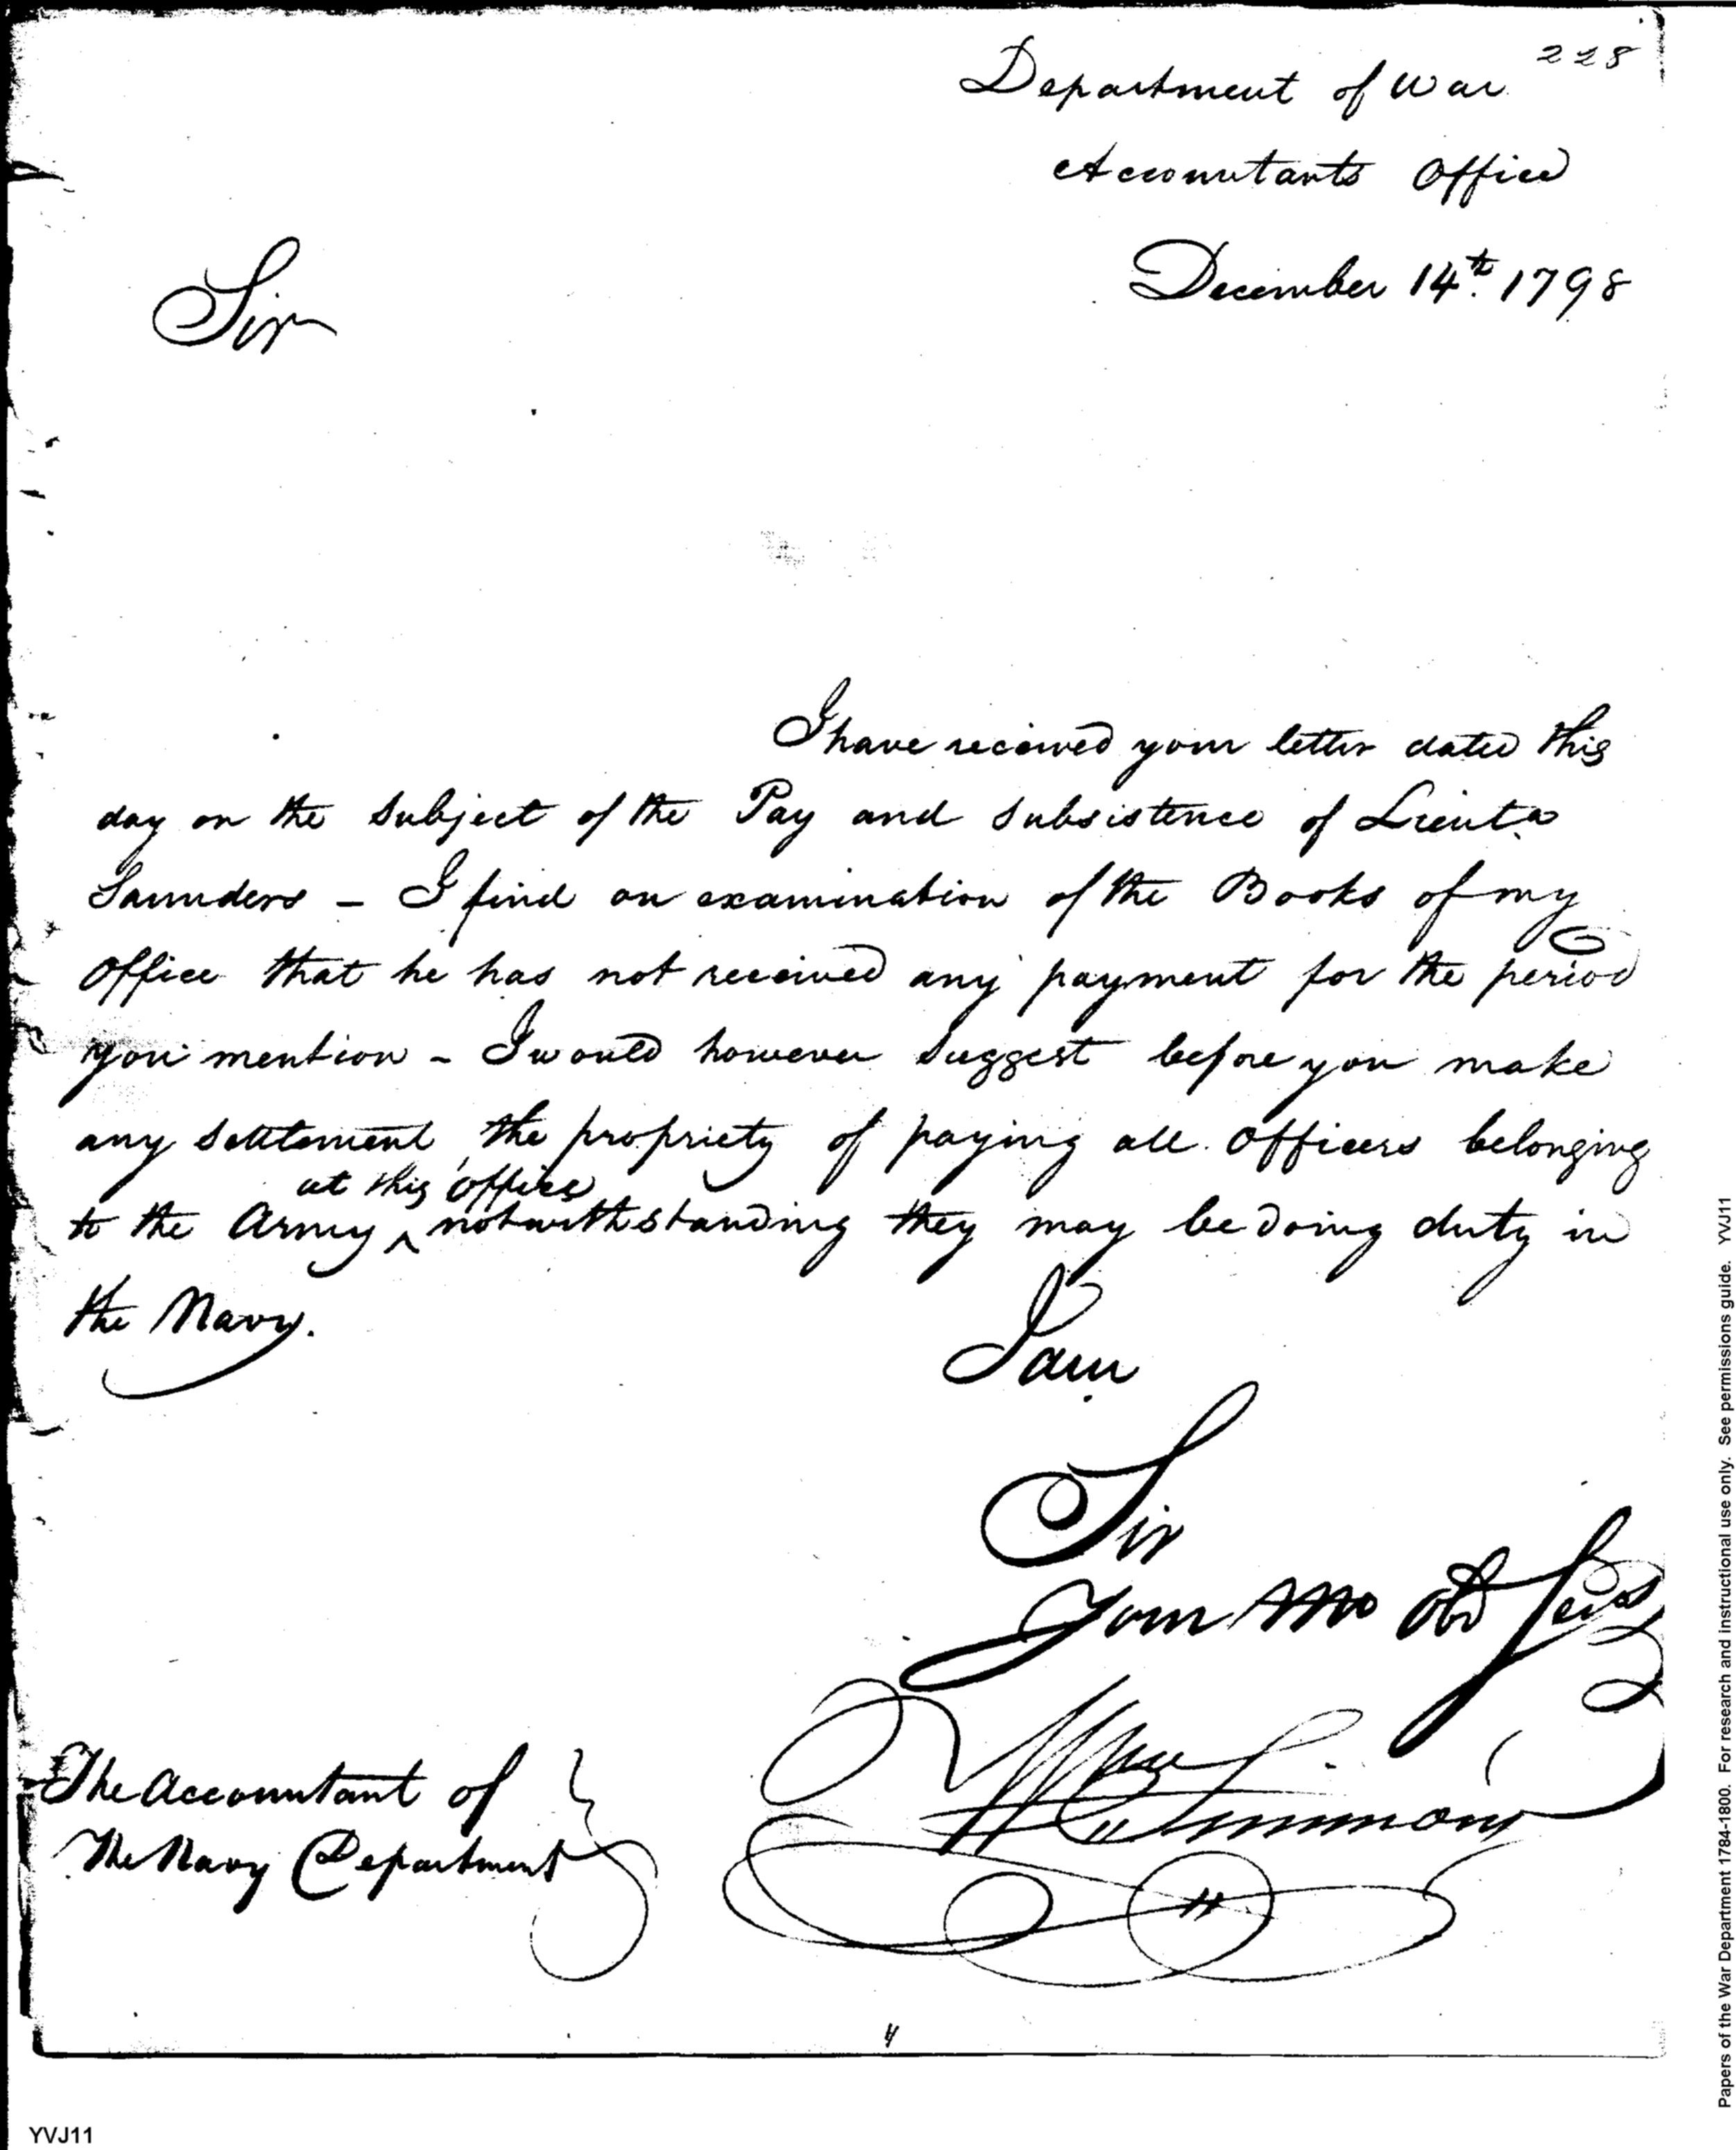 228
Department of War
Accountants Office
December 14th. 1798
Sir
I have received your letter dated this
day on the Subject of the Pay and Subsistence of Lieuta
Saunders – I find on examination of the Books of my
Office that he has not received any payment for the period
you mention – I would however Suggest before you make
any Settlement, the propriety of paying all Officers belonging
at this office
to the Army ^ notwithstanding they may be doing duty in
the Navy.
I am
Sir
Your Mo Obd Serv
Wm Simmons
The Accountant of
The Navy Department
YVJ11
Papers of the War Department 1784-1800. For research and instructional use only. See permissions guide. YVJ11